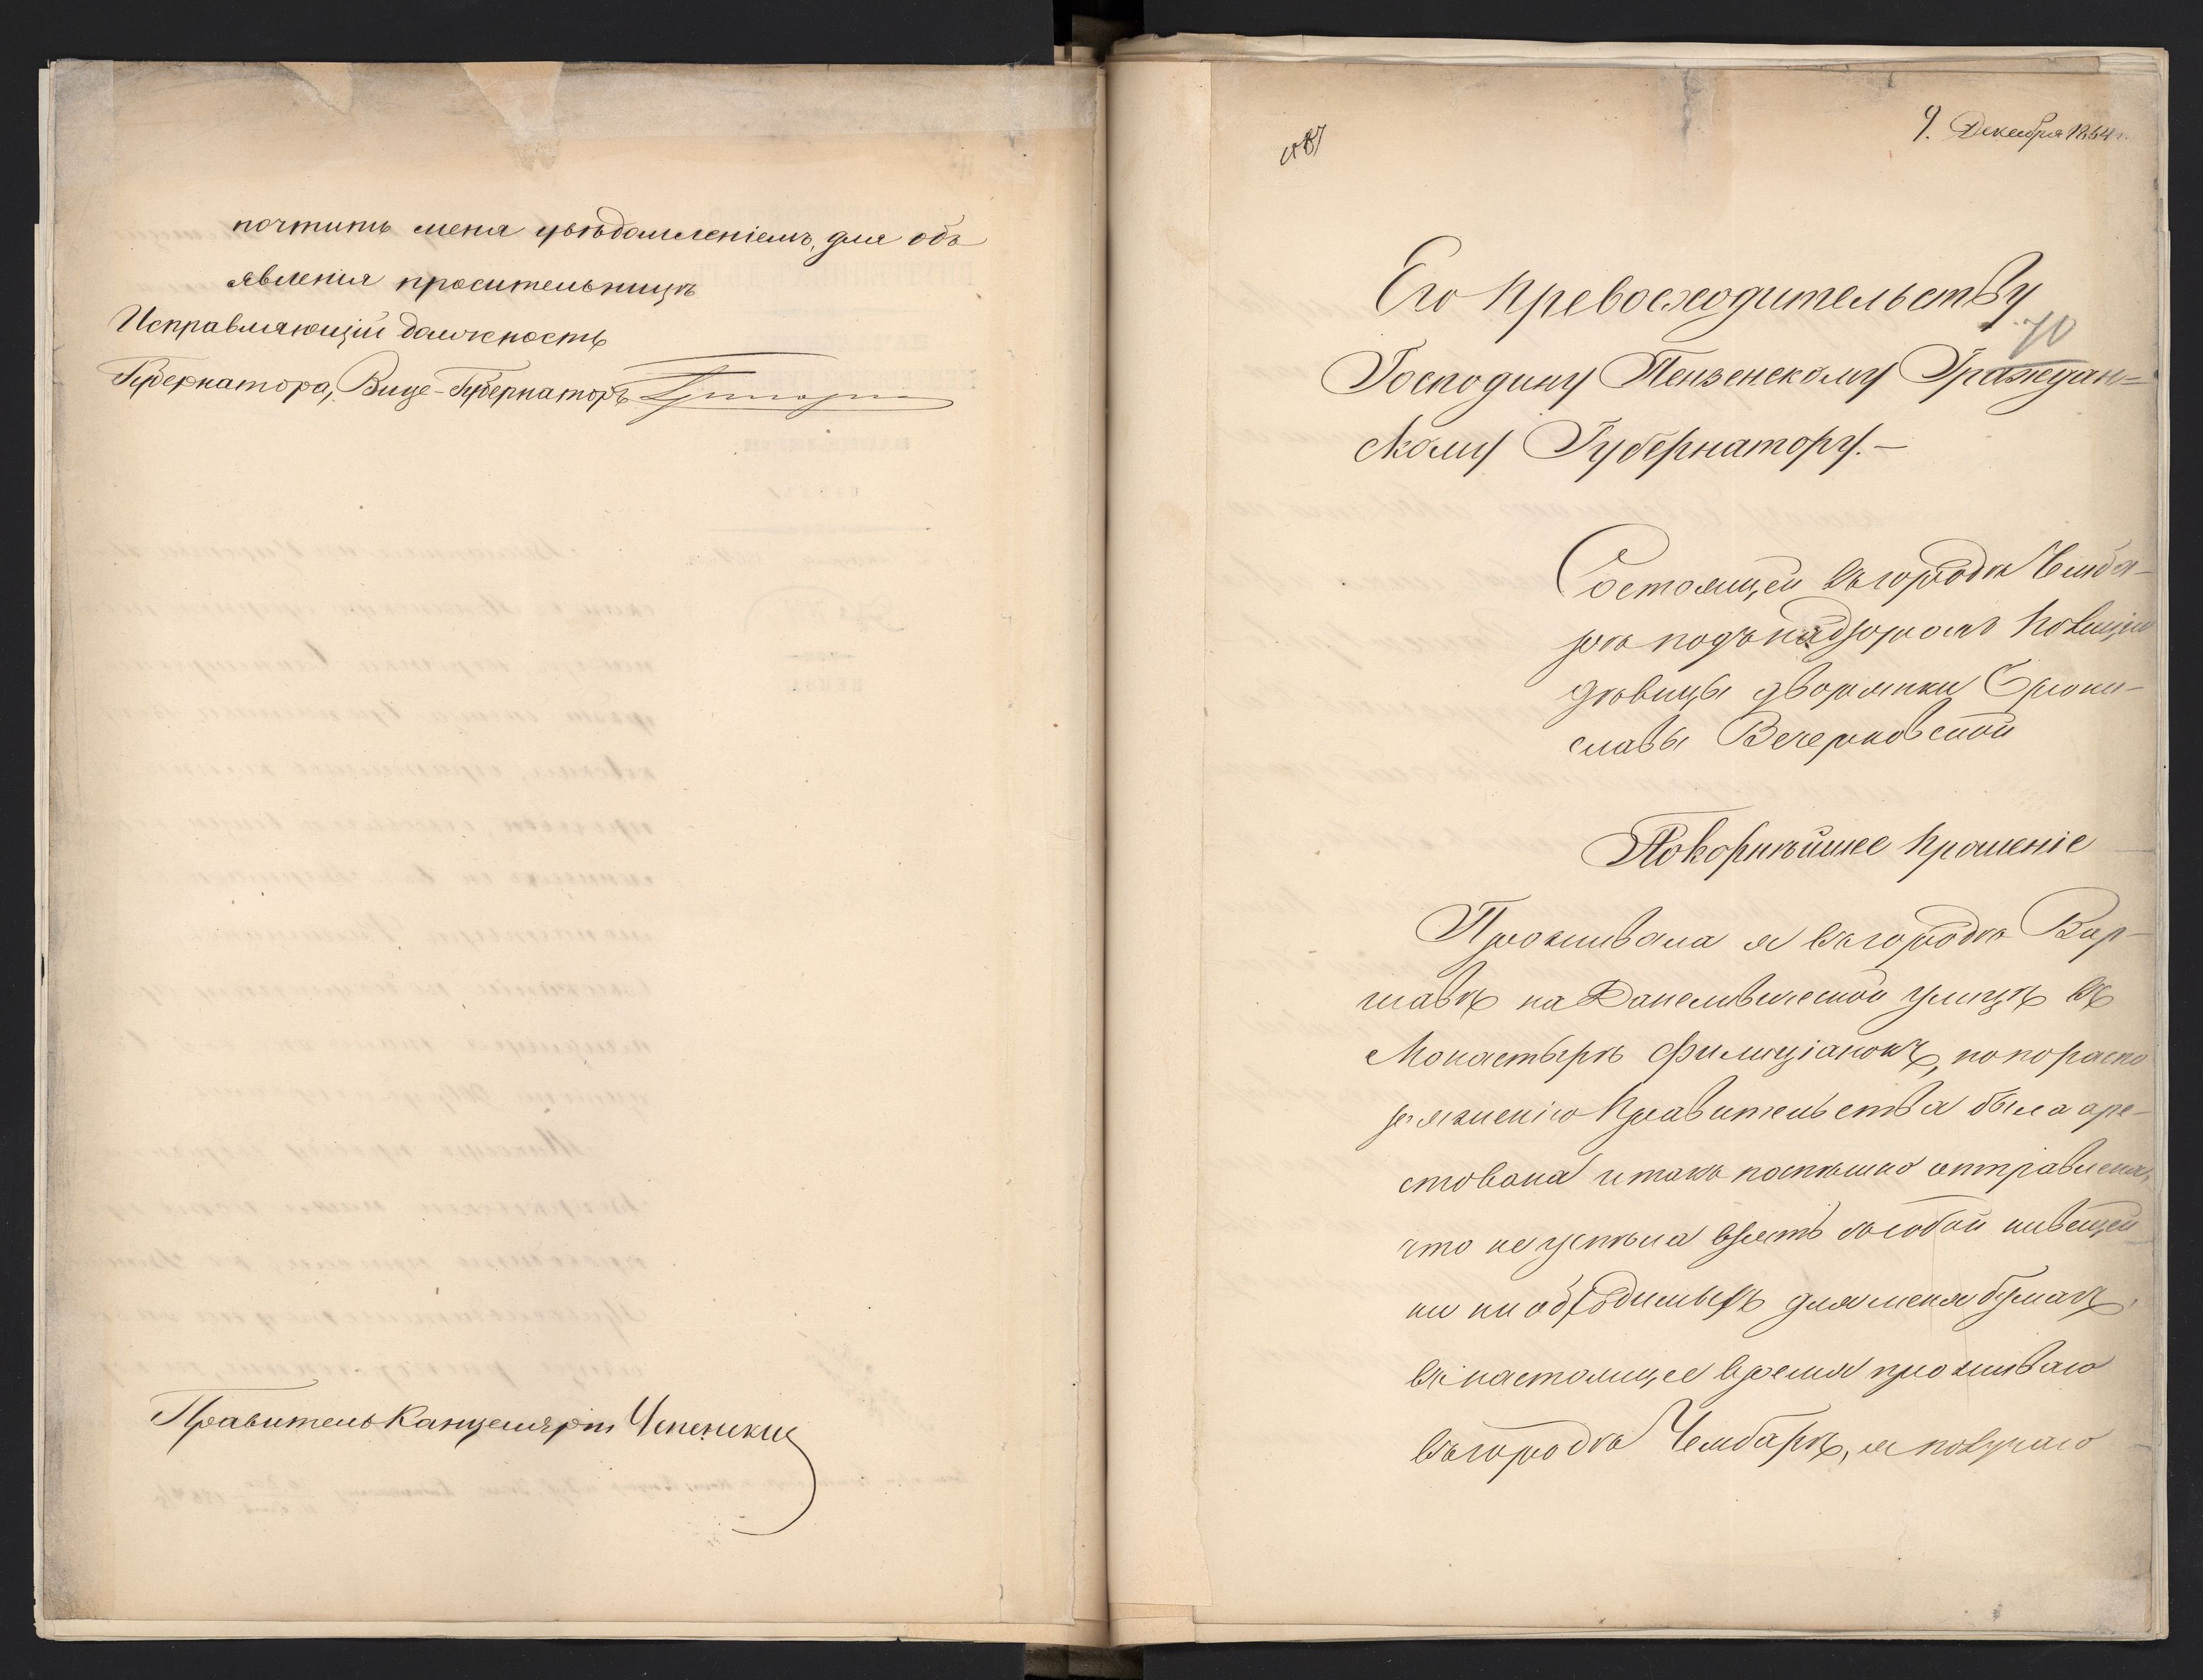 почтить меня увѣдомленіемъ, для объ
явленія просительницѣ
Исправляющій должность
Губернатора, Вице-Губернаторъ
Правитель Канцеляріи
9. Декабря 1864 г.
Его Превосходительству
70
Господину Пензенскому Граждан=
скому Губернатору.—
Состоящей въ городѣ Чемба-
рѣ подъ надзоромъ Полиціи
дѣвицы дворянки Брони-
славы Вечерковской
Покорнѣйшее Прошеніе
Проживала я въ городѣ Вар-
шавѣ на Даниловической улицѣ въ
Монастырѣ Филиціанокъ, но по распо
ряженію Правительства была аре-
стована и такъ поспѣшно отправлена,
что не успѣла взять съ собой ни вещей
ни необходимыхъ для меня бумагъ,
въ настоящее время проживаю
въ городѣ Чембарѣ, и получаю